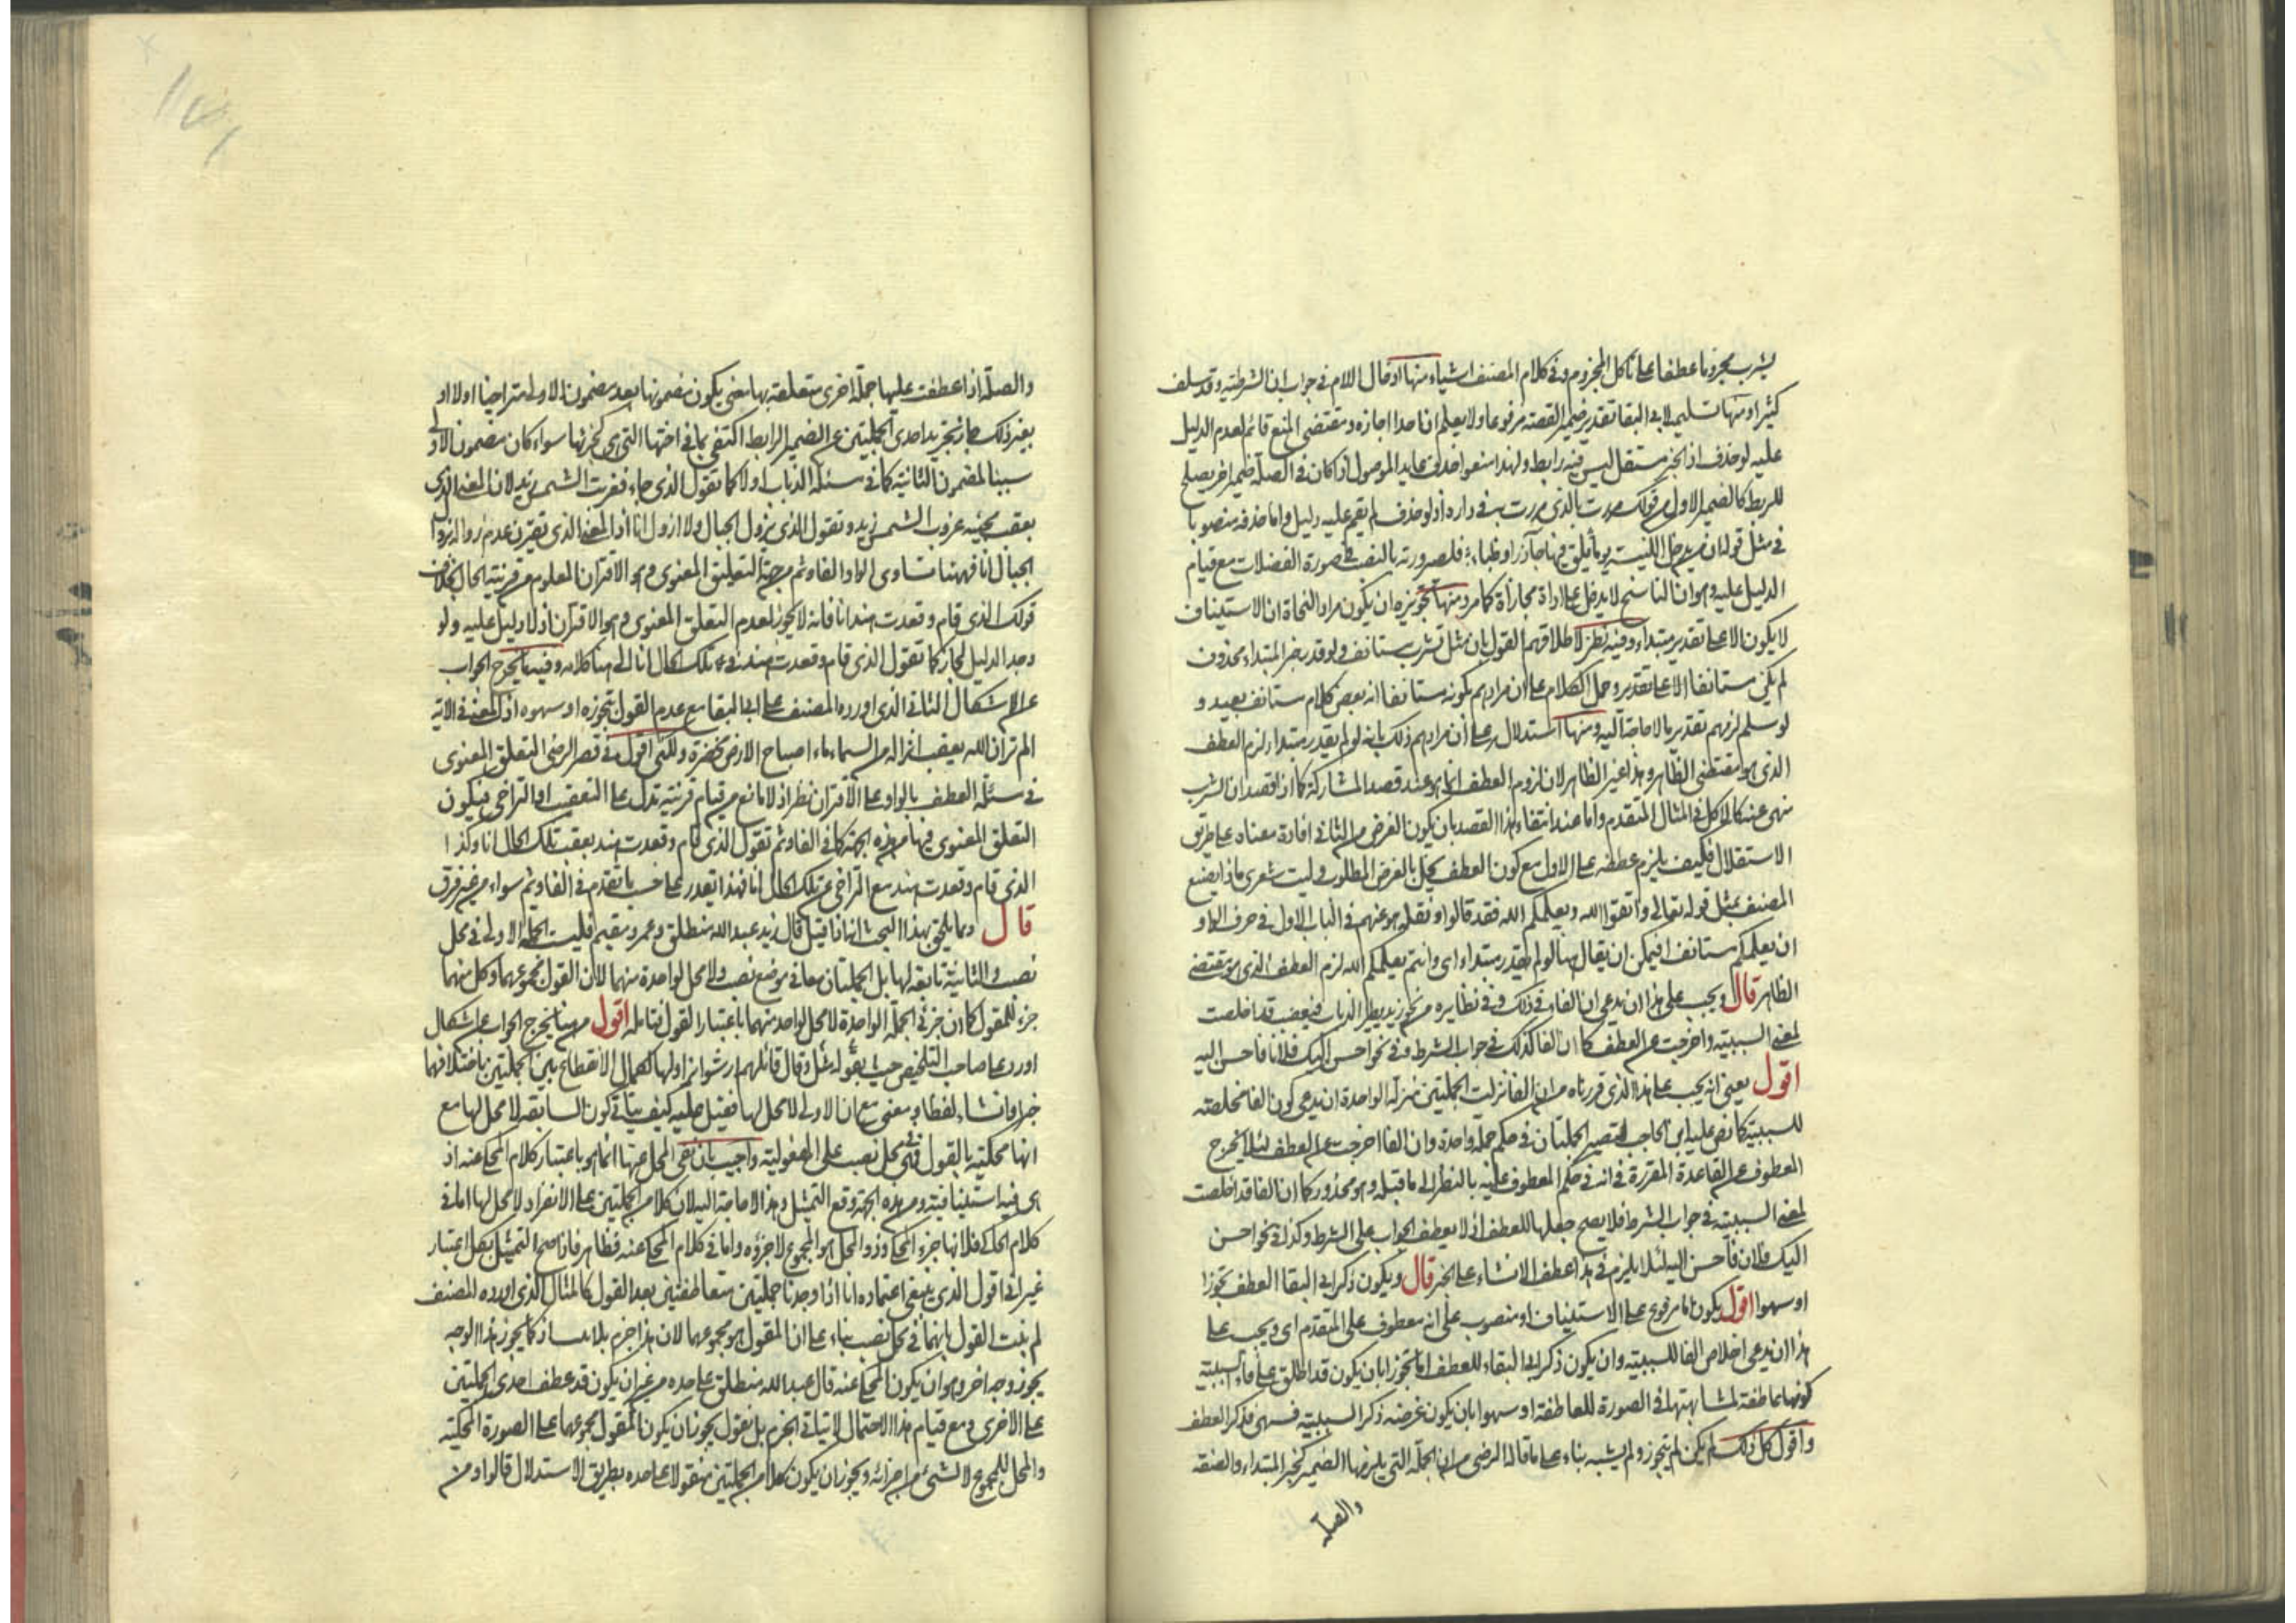 يشرب مجزوما عطفا على تأكل المجزوم وفي كلام المصنف اشياء منها ادخال اللام في جواب ان الشرطية وقد سلف
كثيرا ومنها تسليمه لابي البقا تقدير ضمير القصة مرفوعا ولا يعلم ان احدا اجازه ومقتضى المنع قائم لعدم الدليل
عليه لو حذف اذ الخبر مستقل ليس فيه رابط ولهذا منعوا حذف عايد الموصول اذا كان في الصلة ضمير اخر يصلح
للربط كالضمير الاول من قولك مررت بالذي مررت به في داره اذ لو حذف لم يقم عليه دليل واما حذفه منصوبا
في مثل قوله ان من يدخل الكنيسة يوما يلق فيها جآذرا وظباء فلصيرورته بالنصب في صورة الفضلات مع قيام
الدليل عليه وهو ان الناسخ لا يدخل على اداة مجازاة كما مر ومنها تجويزه ان يكون مراد النحاة ان الاستيناف
لا يكون الا على تقدير مبتداء وفيه نظر لاطلاقهم القول بان مثل تشرب مستانف ولو قدر خبر المبتداء محذوف
لم يكن مستانفا الا على تقدير وحمل الكلام على ان مرادهم بكونه مستانفا انه بعض كلام مستانف بعيد و
لو سلم لزمهم تقدير ما لا حاجة اليه ومنها استدلاله على ان مرادهم ذلك بانه لو لم يقدر مبتداء لزم العطف
الذي هو مقتضى الظاهر وهذا غير الظاهر لان لزوم العطف انما هو عند قصد المشاركة كما اذا قصد ان الشرب
منهي عنه كالاكل في المثال المتقدم واما عند انتفاء هذا القصد بان يكون الغرض من الثاني افادة معناه على طريق
الاستقلال فكيف يلزم عطفه على الاول مع كون العطف يخل بالغرض المطلوب وليت شعري ماذا يصنع
المصنف بمثل قوله تعالى واتقوا الله ويعلمكم الله فقد قالوا ونقله هو عنهم في الباب الاول في حرف الواو
ان يعلمكم مستانف افيمكن ان يقال هنا لو لم يقدر مبتداء اي وانتم يعلمكم الله لزم العطف الذي هو مقتضى
الظاهر قال ويجب على هذا ان يدعي ان الفاء في ذلك وفي نظايره من نحو زيد يطير الذباب فيغضب قد اخلصت
لمعنى السببية واخرجت عن العطف كما ان الفا كذلك في جواب الشرط وفي نحو احسن اليك فلان فاحسن اليه
اقول يعني انه يجب على هذا الذي قررناه من ان الفا نزلت الجملتين منزلة الواحدة ان يدعى كون الفا مخلصة
للسببية كما نص عليه ابن الحاجب لتصير الجملتان في حكم جملة واحدة وان الفا اخرجت عن العطف لئلا يخرج
المعطوف عن القاعدة المقررة في انه في حكم المعطوف عليه بالنظر الى ما قبله وهو محذور كما ان الفا قد اخلصت
لمعنى السببية في جواب الشرط فلا يصح جعلها للعطف اذ لا يعطف الجواب على الشرط وكذا في نحو احسن
اليك فلان فأحسن اليه لئلا يلزم في هذا عطف الانشاء على الخبر قال ويكون ذكر ابي البقا العطف تجوزا
او سهوا اقول يكون اما مرفوع على الاستيناف او منصوب على انه معطوف على المتقدم اي ويجب على
هذا ان يدعى اخلاص الفا للسببية وان يكون ذكر ابي البقاء للعطف اما تجوزا بان يكون قد اطلق على فاء السببية
كونها عاطفة لمشابهتها في الصورة للعاطفة او سهوا بان يكون غرضه ذكر السببية فسهى فذكر العطف
واقول كل ذلك لم يكن لم يتجوز ولم يشبه بناء على ما قاله الرضي من ان الجملة التي يلزمها الضمير كخبر المبتداء والصفة
والصلة
والصلة اذا عطفت عليها جملة اخرى متعلقة بها معنى يكون مضمونها بعد مضمون الاولى متراخيا اولا او
بغير ذلك جاز تجريد احدى الجملتين عن الضمير الرابط اكتفى بما في اختها التي هي كجزئها سواء كان مضمون الاولى
سببا لمضمون الثانية كما في مسئلة الذباب او لا كما تقول الذي جاء فغربت الشمس زيد لان المعنى الذي
يعقب مجيئه غروب الشمس زيد وتقول الذي تزول الجبال ولا ازول انا اذ المعنى الذي تقترن عدم زواله بزوال
الجبال انا فههنا تساوى الواو الفا وثم من جهة التعليق المعنوي وهو الاقتران المعلوم من قرينة الحال بخلاف
قولك الذي قام وقعدت هند انا فانه لا يجوز لعدم التعلق المعنوي وهو الاقتران اذ لا دليل عليه ولو
وجد الدليل لجاز كما تقول الذي قام وقعدت هند في تلك الحال انا الى هنا كلامه وفيه ما يخرج الجواب
عن الاشكال الثاني الذي اورده المصنف على ابي البقا مع عدم القول بتجوزه او سهوه اذ المعنى في الاية
الم تر ان الله يعقب انزاله من السماء ماء اصباح الارض مخضرة ولكني اقول في قصر الرضي التعلق المعنوي
في مسئلة العطف بالواو على الاقتران نظر اذ لا مانع من قيام قرينة تدل على التعقيب او التراخي فيكون
التعلق المعنوي فيها من هذه الجهة كما في الفا وثم تقول الذي قام وقعدت هند بعقب تلك الحال انا وكذا
الذي قام وقعدت هند مع التراخي عن تلك الحال انا فهذا يقدر على حسب ما تقدم في الفا وثم سواء من غير فرق
قال ومما يلحق بهذا البحث انه اذا قيل قال زيد عبد الله منطلق وعمرو مقيم فليست الجملة الاولى في محل
نصب والثانية تابعة لها بل الجملتان معا في موضع نصب ولا محل لواحدة منهما لان القول مجموعهما وكل منهما
جزء للمقول كما ان جزئي الجملة الواحدة لا محل لواحد منهما باعتبار القول فتامله اقول من هنا يخرج الجواب عن اشكال
اورد على صاحب التلخيص حيث مثل بقوله وقال قائلهم ارسوا نزاولها لكمال الانقطاع بين الجملتين باختلافهما
خبرا وانشاء لفظا ومعنى مع ان الاولى لا محل لها فقيل عليه كيف يتاتى كون السابقة لا محل لها مع
انها محكية بالقول فهي في محل نصب على المفعولية واجيب بان نفي المحل عنها انما هو باعتبار كلام المحكي عنه اذ
هي فيه استينافية ومن هذه الجهة وقع التمثيل وهذا لا حاجة اليه لان كلا من الجملتين على الانفراد لا محل لها اما في
كلام الحاكي فلانها جزء المحكي وذو المحل هو المجموع لا جزؤه واما في كلام المحكي عنه فظاهر فاذا صح التمثيل بكل اعتبار
غير اني اقول الذي ينبغي اعتماده انا اذا وجدنا جملتين متعاطفتين بعد القول كالمثال الذي اورده المصنف
لم نبت القول بانهما في محل نصب بناء على ان المقول هو مجموعهما لان هذا جزم بلا مساذ كما يجوز هذا الوجه
يجوز وجه اخر وهو ان يكون المحكي عنه قال عبد الله منطلق على حده من غير ان يكون قد عطف احدى الجملتين
على الاخرى ومع قيام هذا الاحتمال لا يتاتى الجزم بل نقول يجوز ان يكون المقول مجموعهما على الصورة المحكية
والمحل للمجموع لا لشئ من اجزائه ويجوز ان يكون كلا من الجملتين منقولا على حده بطريق الاستدلال قالوا ومن